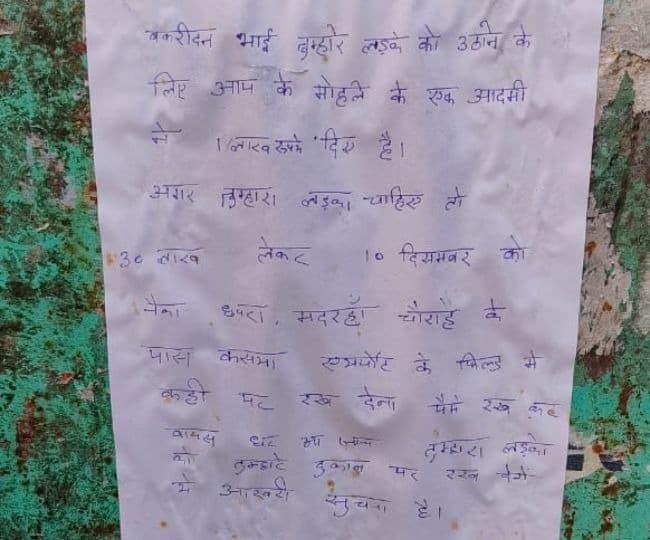 बकरीदन भाई तुम्हारे लड़के को उठाने के
लिए आप के मोहले के एक आदमी
ने 1 लाख रूपये दिए है।
अगर तुम्हारा लड़का चाहिए तो
30 लाख लेकर 10 दिसम्बर को
छपरा, मदरहाँ चौराहे के
पास कसया एयरपोर्ट के फिल्ड मे
कही पर रख देना पैसे रख कर
वापस घर आ तुम्हारा लड़के
को तुम्हारे दुकान पर रख देगे
ये आखरी सुचना है।